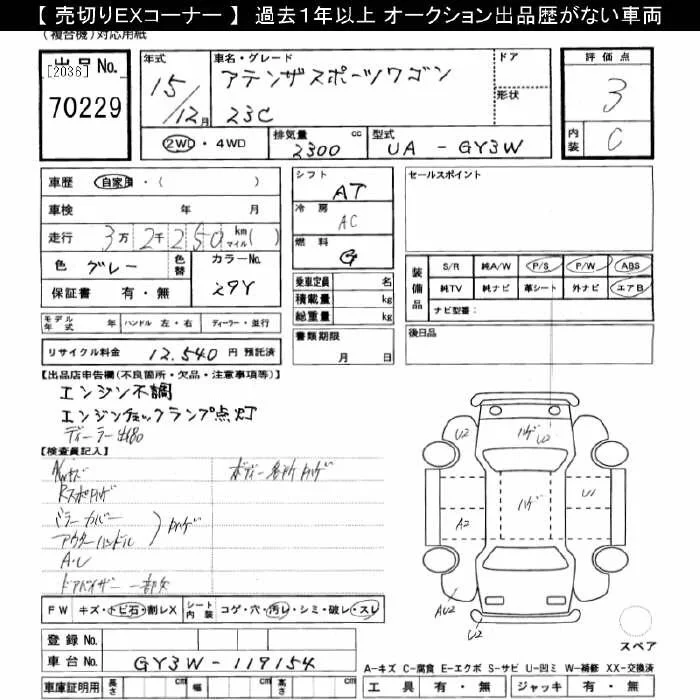 【 売切りEXコーナー 】 過去１年以上 オークション出品歴がない車両
(複合機)対応用紙
出品No.
[2036]
70229
年式
15/12月
車名・グレード
アテンザスポーツワゴン
23C
ドア
形状
評価点
3
内装
C
2WD・4WD
排気量
2300
cc
型式
UA - GY3W
車歴
自家用・( )
車検 年 月
走行 3万2千250 kmマイル( )
色 グレー
色替
カラーNo.
29Y
保証書 有・無
モデル年式 年
ハンドル 左・右
ディーラー・並行
リサイクル料金 12.540 円 預託済
シフト
AT
冷房
AC
燃料
G
乗車定員 名
積載量 kg
総重量 kg
書類期限
月 日
セールスポイント
装備品
S/R 純A/W P/S P/W ABS
純TV 純ナビ 革シート 外ナビ エアB
ナビ型番：
後日品
【出品店申告欄(不良箇所・欠品・注意事項等)】
エンジン不調
エンジンチェックランプ点灯
【検査員記入】
A/Wキズ
ボディー各所
ミラーカバー
アウターハンドル
ドアバイザー 一部欠
FW キズ・トビ石・割レX
シート内装 コゲ・穴・汚レ・シミ・破レ・スレ
登録No.
車台No. GY3W-119154
車庫証明用 長さ cm 幅 cm 高さ cm
U2
ハゲ
U2
ハゲ
U1
A2
AU2
U2
スペア
A-キズ C-腐食 E-エクボ S-サビ U-凹ミ W-補修 XX-交換済
工具 有・無 ジャッキ 有・無